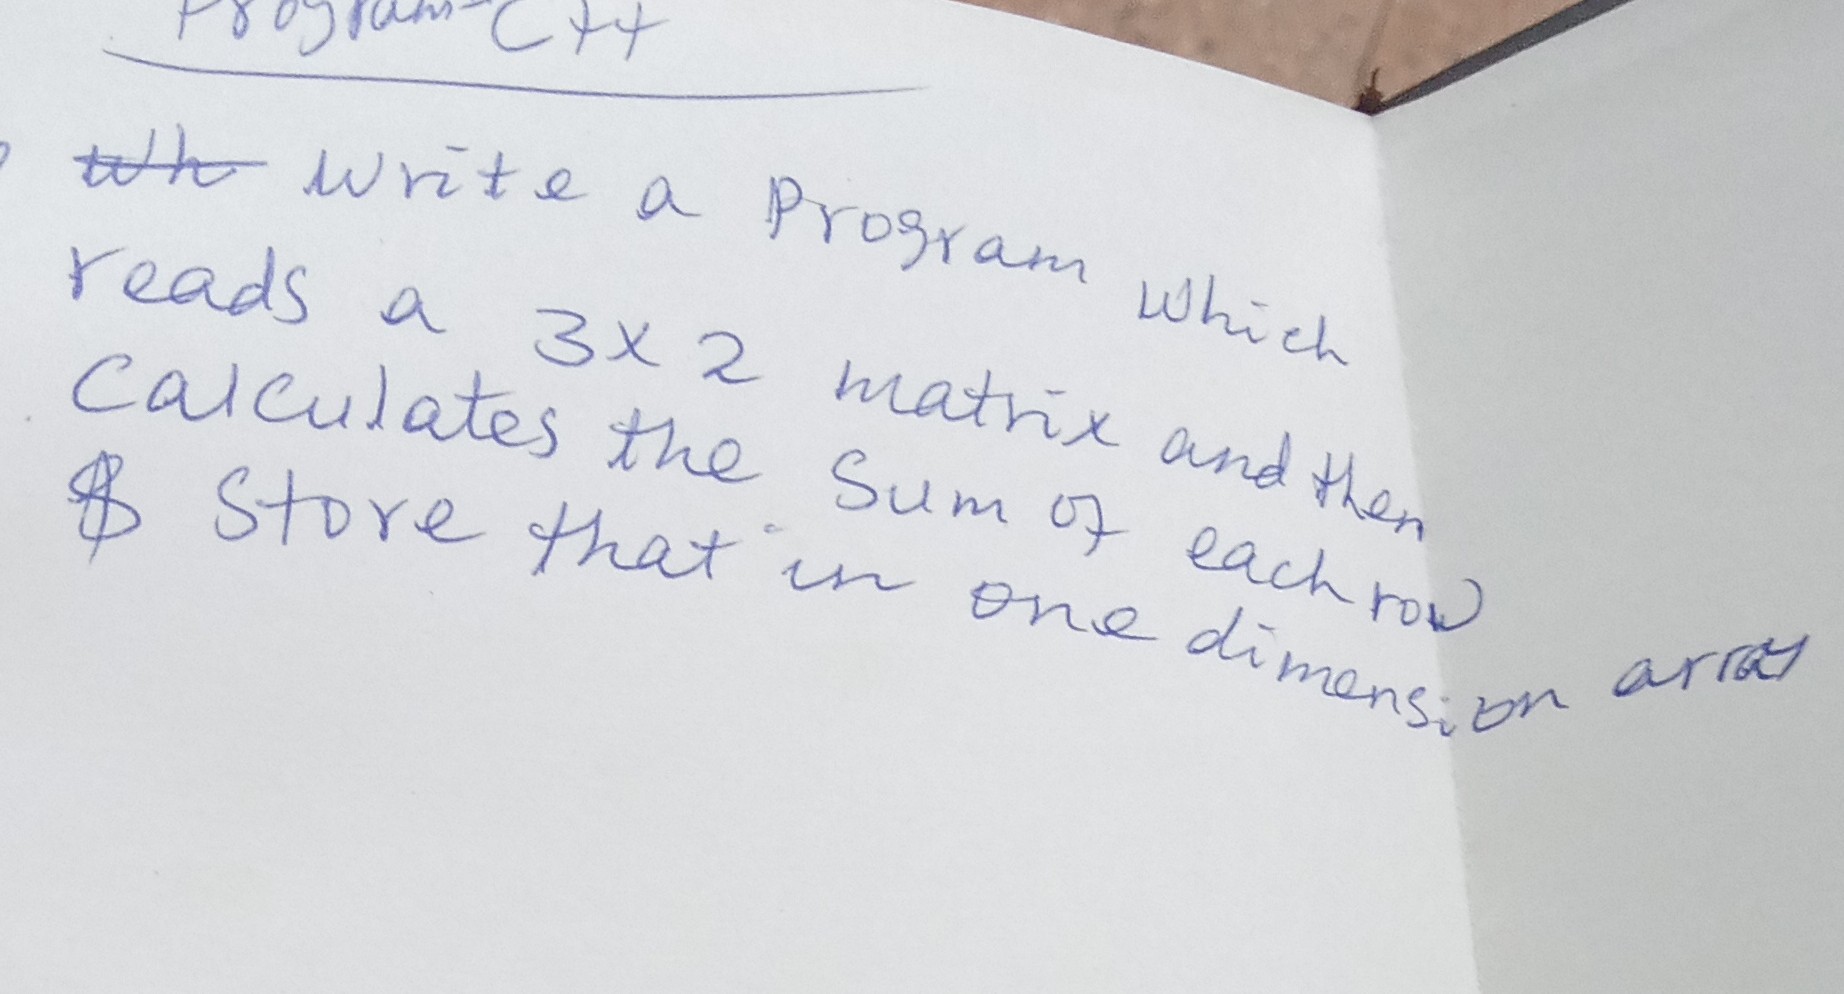 Program C++
Write a Program which
reads a 3x2 matrix and then
Calculates the Sum of each row
& Store that in one dimension array